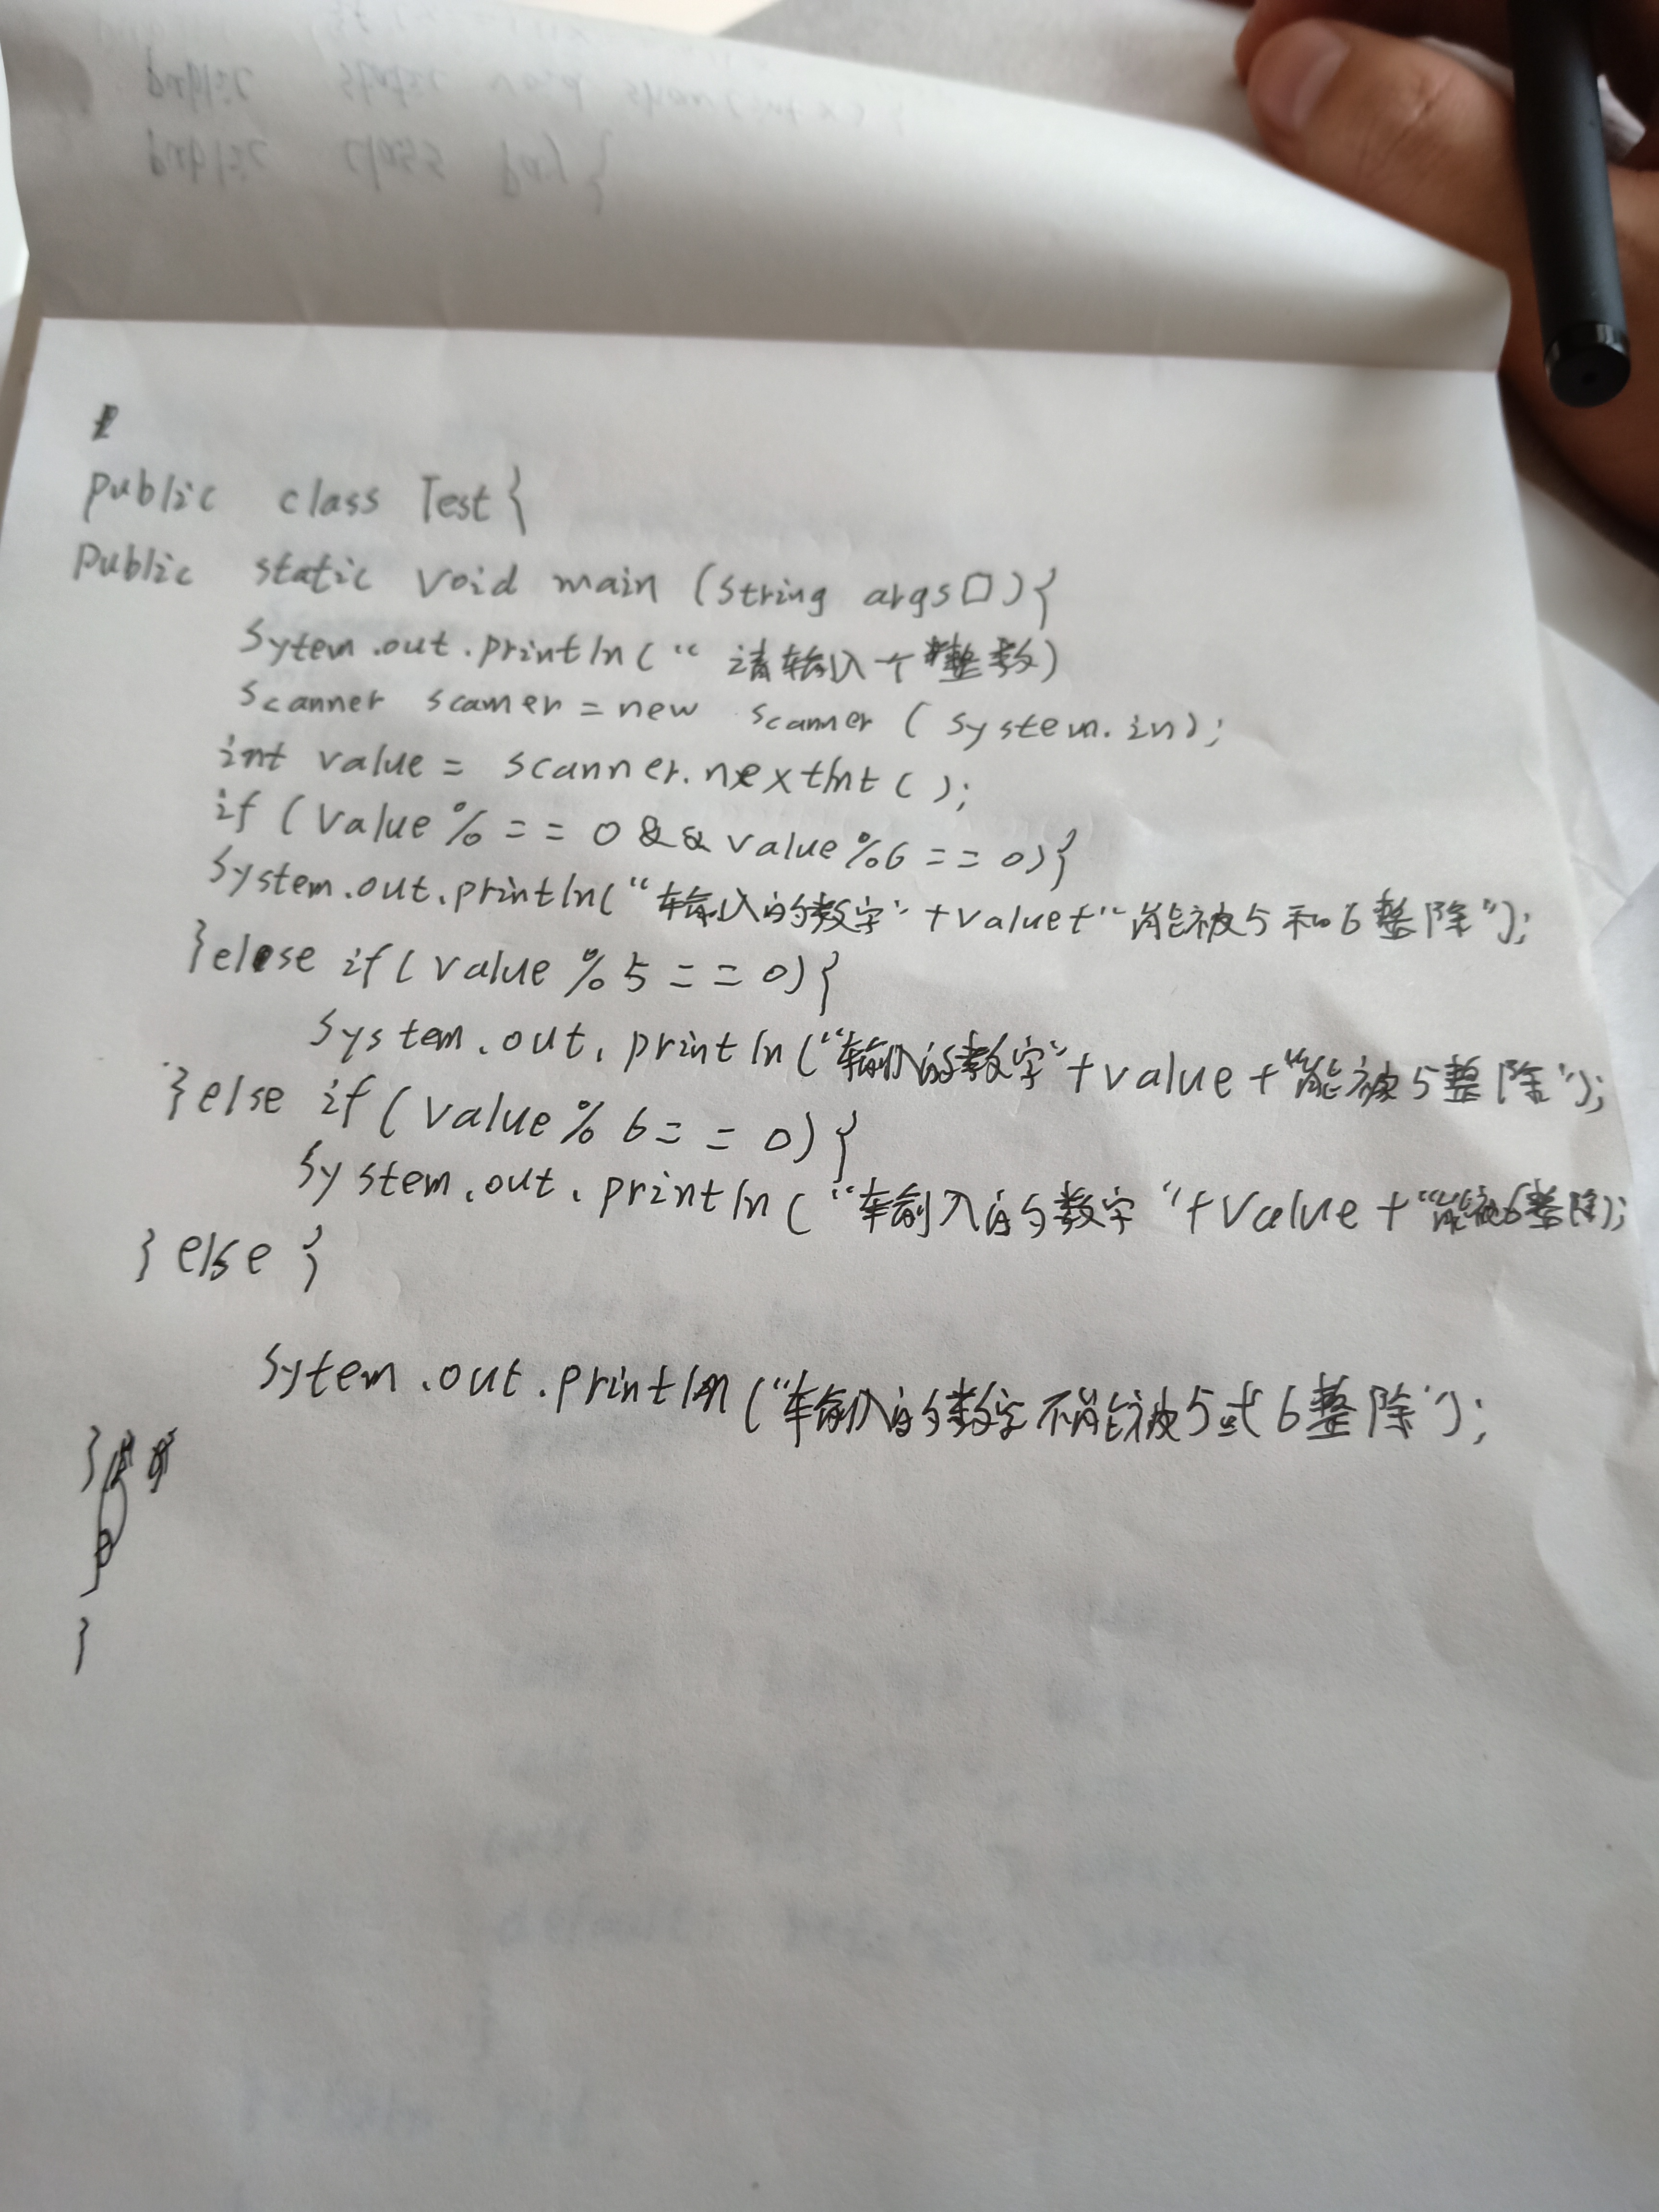 public static void show(int x){
public class Pay{
public class Test{
public static void main (String args[]){
Sytem.out.println(“ 请输入一个整数)
Scanner scanner = new scanner ( System.in);
int value = scanner.nextInt ( );
if ( value % == 0 && value %6 == 0){
System.out.println(“输入的数字”+value+“能被5和6整除”);
}else if( value % 5 == 0){
System.out.println(“输入的数字”+value+“能被5整除”);
}else if ( value % 6 == 0){
System.out.println(“输入的数字”+value+“能被6整除);
} else {
Sytem.out.println(“输入的数字不能被5或6整除”);
}
}